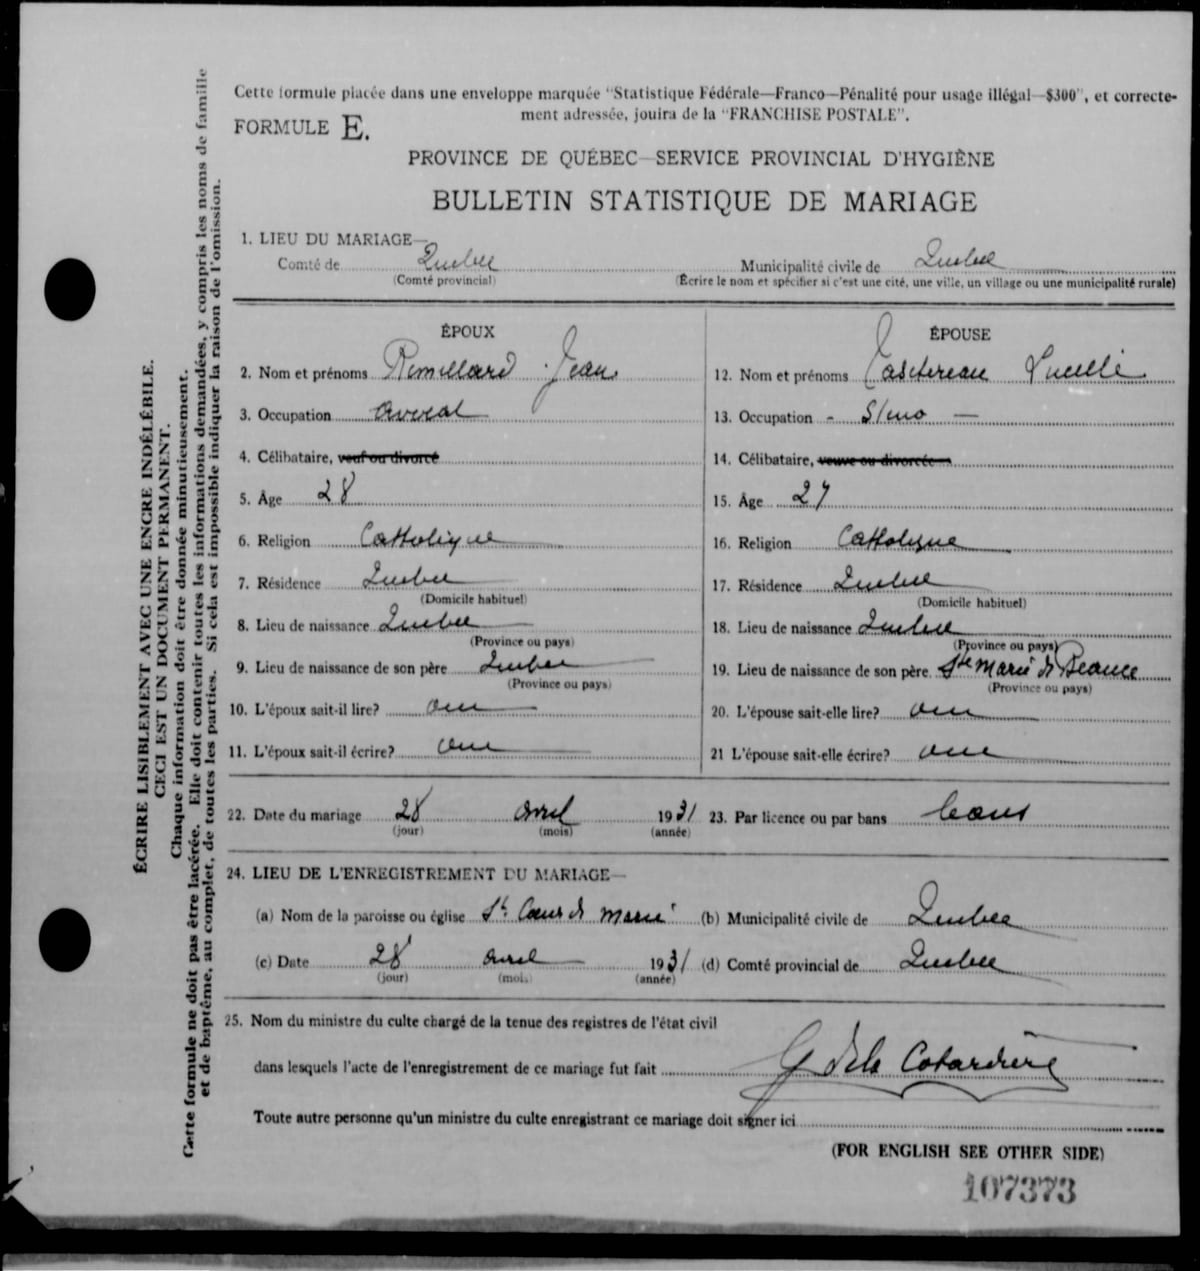 Cette formule placée dans une enveloppe marquée "Statistique Fédérale—Franco—Pénalité pour usage illégal—$300", et correcte-
ment adressée, jouira de la "FRANCHISE POSTALE".
FORMULE E.
PROVINCE DE QUÉBEC—SERVICE PROVINCIAL D'HYGIÈNE
BULLETIN STATISTIQUE DE MARIAGE
1. LIEU DU MARIAGE—
Comté de Quebec Municipalité civile de Quebec
(Comté provincial) (Écrire le nom et spécifier si c'est une cité, une ville, un village ou une municipalité rurale)
ÉPOUX
2. Nom et prénoms Remillard Jean
3. Occupation avocat
4. Célibataire, veuf ou divorcé
5. Âge 28
6. Religion Catholique
7. Résidence Quebec
(Domicile habituel)
8. Lieu de naissance Quebec
(Province ou pays)
9. Lieu de naissance de son père Quebec
(Province ou pays)
10. L'époux sait-il lire? oui
11. L'époux sait-il écrire? oui
ÉPOUSE
12. Nom et prénoms Taschereau Lucille
13. Occupation - Steno —
14. Célibataire, veuve ou divorcée
15. Âge 27
16. Religion Catholique
17. Résidence Quebec
(Domicile habituel)
18. Lieu de naissance Quebec
(Province ou pays)
19. Lieu de naissance de son père Ste Marie de Beauce
(Province ou pays)
20. L'épouse sait-elle lire? oui
21 L'épouse sait-elle écrire? oui
22. Date du mariage 28 avril 1931 23. Par licence ou par bans bans
(jour) (mois) (année)
24. LIEU DE L'ENREGISTREMENT DU MARIAGE—
(a) Nom de la paroisse ou église St Coeur de Marie (b) Municipalité civile de Quebec
(c) Date 28 avril 1931 (d) Comté provincial de Quebec
(jour) (mois) (année)
25. Nom du ministre du culte chargé de la tenue des registres de l'état civil
dans lesquels l'acte de l'enregistrement de ce mariage fut fait G de la Cotardière
Toute autre personne qu'un ministre du culte enregistrant ce mariage doit signer ici
(FOR ENGLISH SEE OTHER SIDE)
107373
ÉCRIRE LISIBLEMENT AVEC UNE ENCRE INDÉLÉBILE.
CECI EST UN DOCUMENT PERMANENT.
Chaque information doit être donnée minutieusement.
Cette formule ne doit pas être lacérée. Elle doit contenir toutes les informations demandées, y compris les noms de famille
et de baptême, au complet, de toutes les parties. Si cela est impossible indiquer la raison de l'omission.